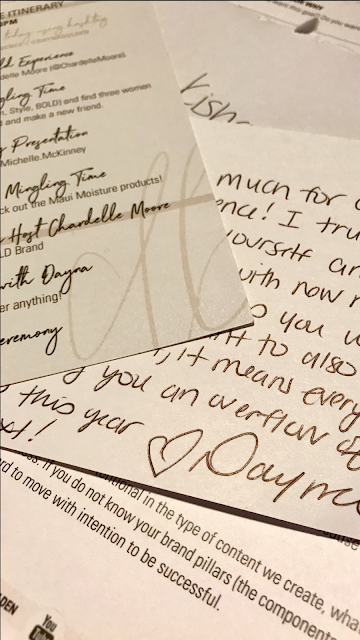 ITINERARY
using hashtag
Experience
delle Moore (@ChardelleMoore).
gling Time
n, Style, BOLD) and find three women
and make a new friend.
Presentation
Michelle.McKinney
Mingling Time
ck out the Maui Moisture products!
Host Chardelle Moore
LD Brand
with Dayna
er anything!
eremony
WHY
Kish
much for
ence! I tru
yourself an
with now
you w
to also
, it means every
you an overflow of
this year
xt! ♡ Dayna
in the type of content we create, wha
. If you do not know your brand pillars (the components
rd to move with intention to be successful.
DEN
You